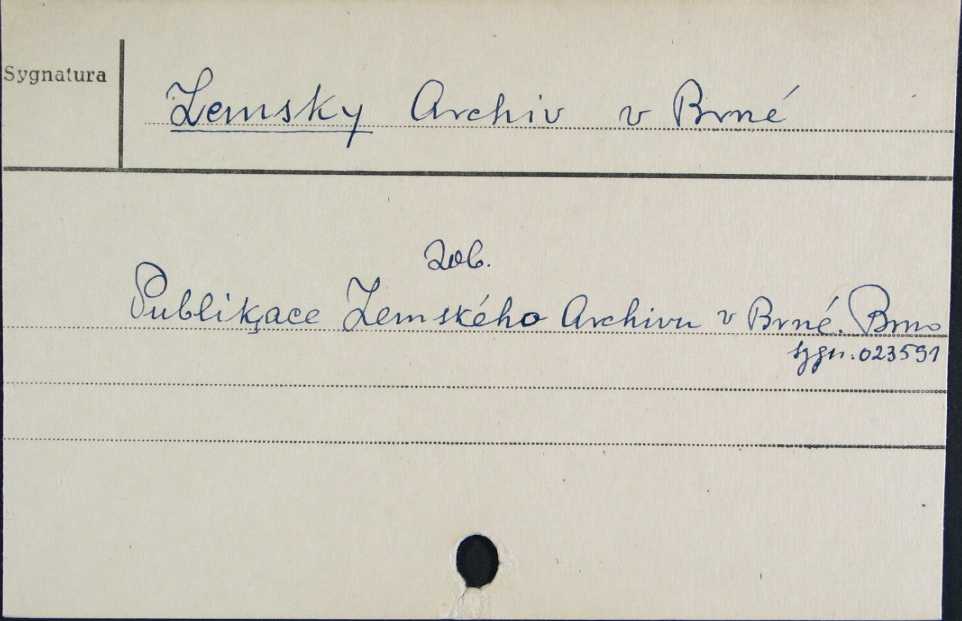 Sygnatura
Zemsky Archiv v Brné
zob.
Publikace Zemského Archivu v Brné. Brno
sygn. 023591